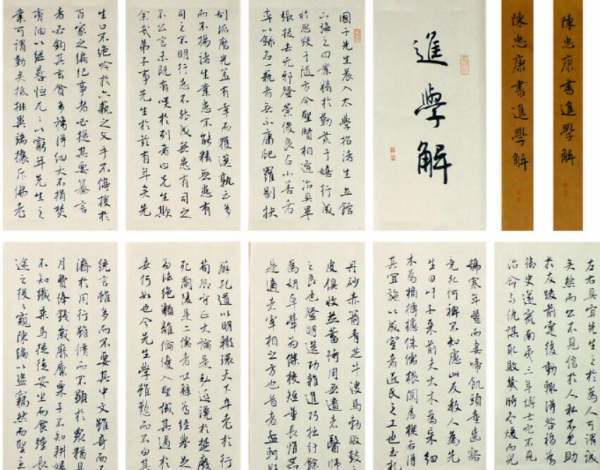 陳忠康書進學解
陳忠康書進學解
進學解
國子先生晨入太學招諸生立館
下誨之曰業精於勤荒于嬉行成
於思毀于隨方今聖賢相逢治具畢
張拔去兇邪登崇俊良占小善者
率以錄名一藝者無不庸爬羅剔抉
刮垢磨光蓋有幸而獲選孰云多
而不揚諸生業患不能精無患有
司之不明行患不能成無患有司之
不公言未既有笑於列者曰先生欺
余哉弟子事先生於茲有年矣先
生口不絕吟於六藝之文手不停披於
百家之編紀事者必提其要纂言
者必鉤其玄貪多務得細大不捐焚
膏油以繼晷恒兀兀以窮年先生之
業可謂勤矣觝排異端攘斥佛老
左右具宜先生之於為人可謂成
矣然而公不見信於人私不見助
於友跋前躓後動輒得咎暫為
御史遂竄南夷三年博士冗不見
治命與仇謀取敗幾時冬煖而兒
號寒年豐而妻啼飢頭童齒豁
竟死何裨不知慮此而反教人為先
生曰吁子來前夫大木為杗細
木為桷欂櫨侏儒椳闑扂楔各得
其宜施以成室者匠氏之工也玉札
丹砂赤箭青芝牛溲馬勃敗鼓之
皮俱收並蓄待用無遺者醫師
之良也登明選公雜進巧拙紆餘
為妍卓犖為傑校短量長惟器
是適者宰相之方也昔者孟軻好
辯孔道以明轍環天下卒老於行
荀卿守正大論是弘逃讒於楚廢
死蘭陵是二儒者吐辭為經舉足
為法絕類離倫優入聖域其遇於
世何如也今先生學雖勤而不由其
統言雖多而不要其中文雖奇而不
濟於用行雖修而不顯於眾猶且
月費俸錢歲靡廩粟子不知耕婦
不知織乘馬從徒安坐而食踵常
途之促促窺陳編以盜竊然而聖主